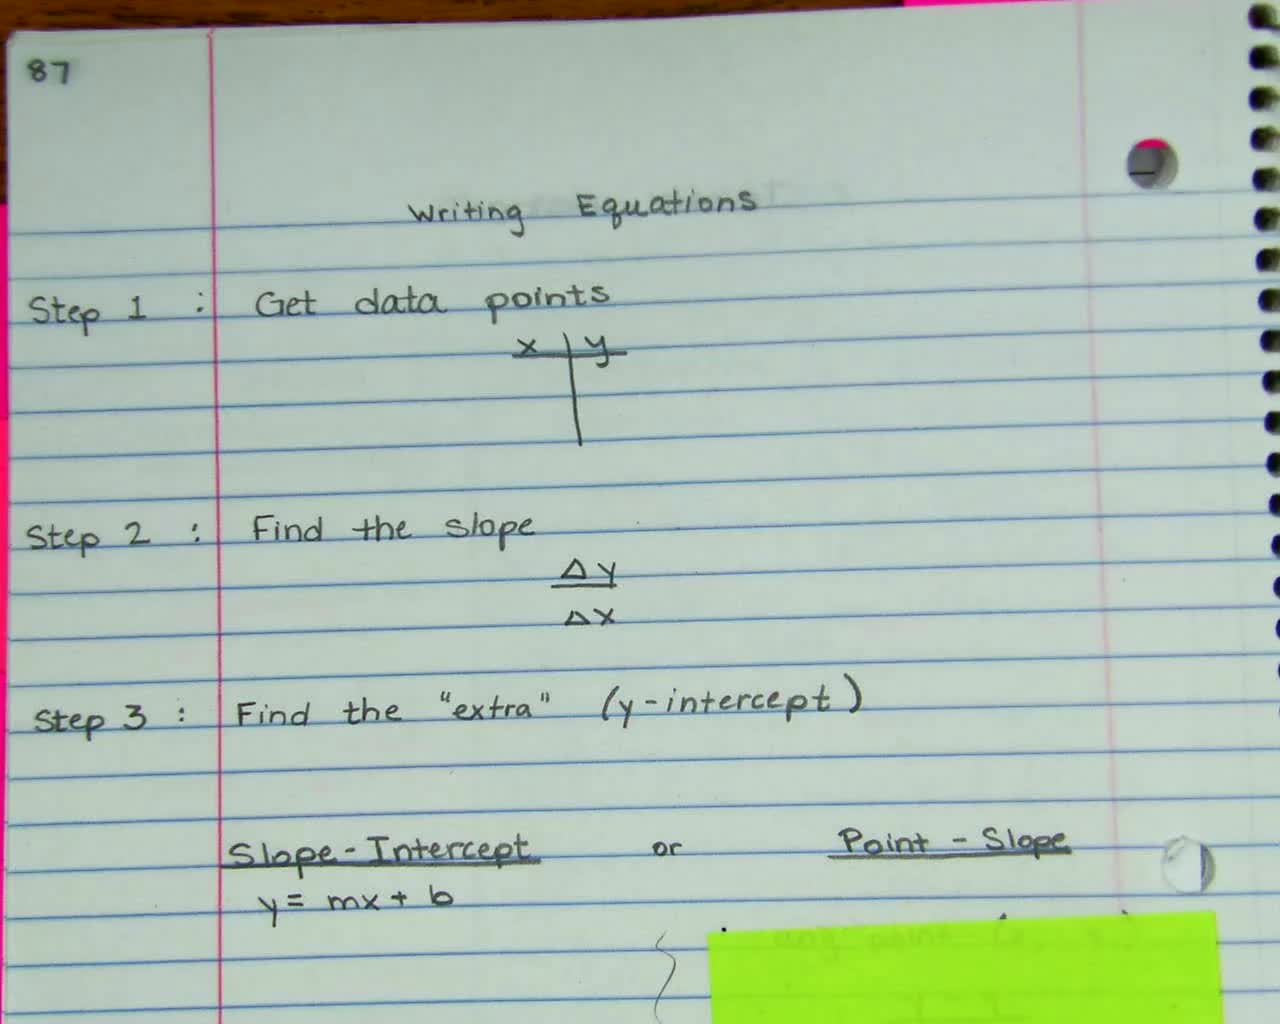 87
Writing Equations
Step 1 : Get data points
x y
Step 2 : Find the slope
Δy
Δx
Step 3 : Find the "extra" (y-intercept)
Slope-Intercept or Point-Slope
y = mx + b
any point (